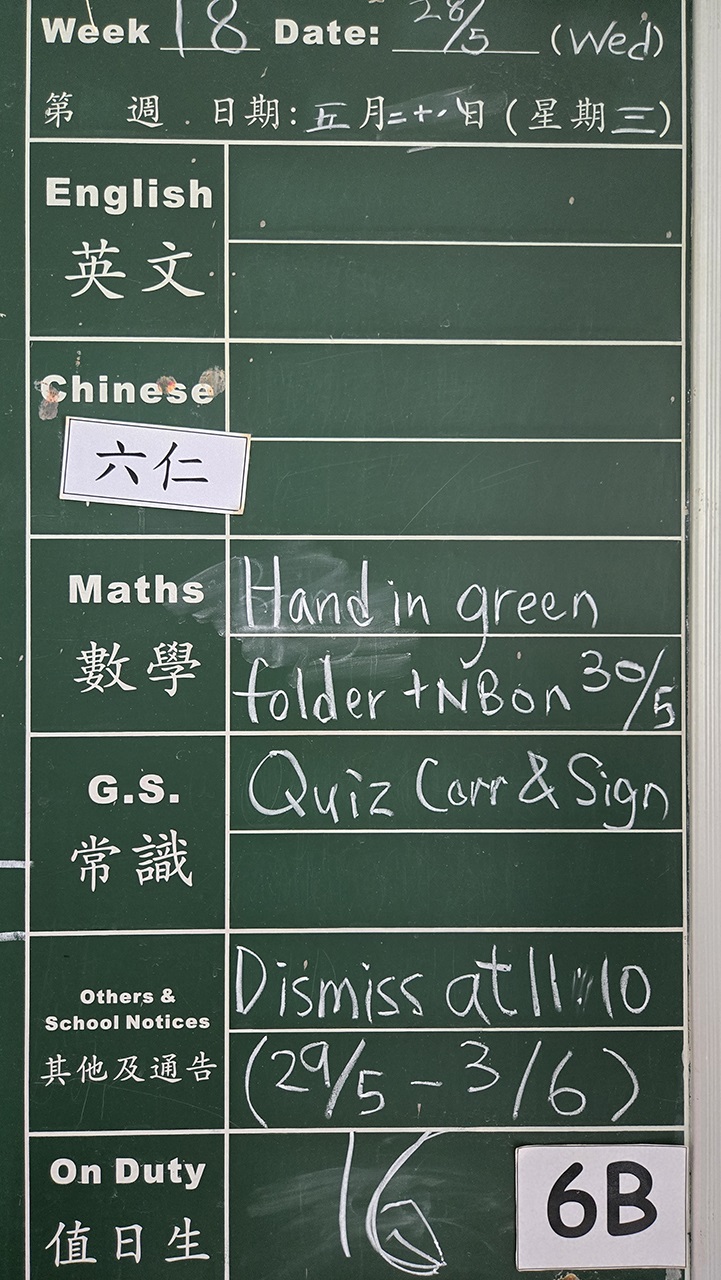 Week 18 Date: 28/5 (Wed)
第 週 . 日期: 五月二十八日 (星期三)
English
英文
Chinese
六仁
Maths
數學
Hand in green
folder + NB on 30/5
G.S.
常識
Quiz Corr & Sign
Others &
School Notices
其他及通告
Dismiss at 11:10
(29/5 - 3/6)
On Duty
值日生
16
6B